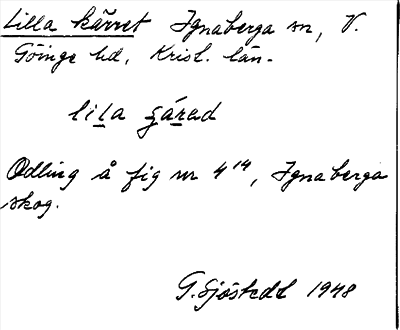 Lilla kärret Ignaberga sn, V.
Göinge hd, Krist. län.
lila gárad
Odling å fig nr 4¹⁴, Ignaberga
skog.
G. Sjöstedt 1948